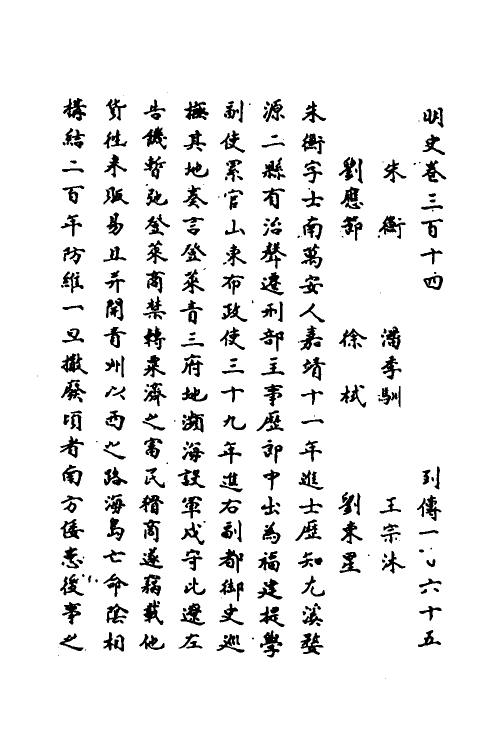 明史卷三百十四 列傳一百六十五
朱衡 潘季馴 王宗沐
劉應節 徐栻 劉東星
朱衡字士南萬安人嘉靖十一年進士歷知尤溪婺
源二縣有治聲遷刑部主事歷郎中出為福建提學
副使累官山東布政使三十九年進右副都御史巡
撫其地奏言登萊青三府地瀕海設軍戍守比遼左
告饑暫弛登萊商禁轉粟濟之富民猾商遂竊載他
貨往來販易且并開青州以西之路海島亡命陰相
搆結二百年防維一旦撤廢頃者南方倭患後事之